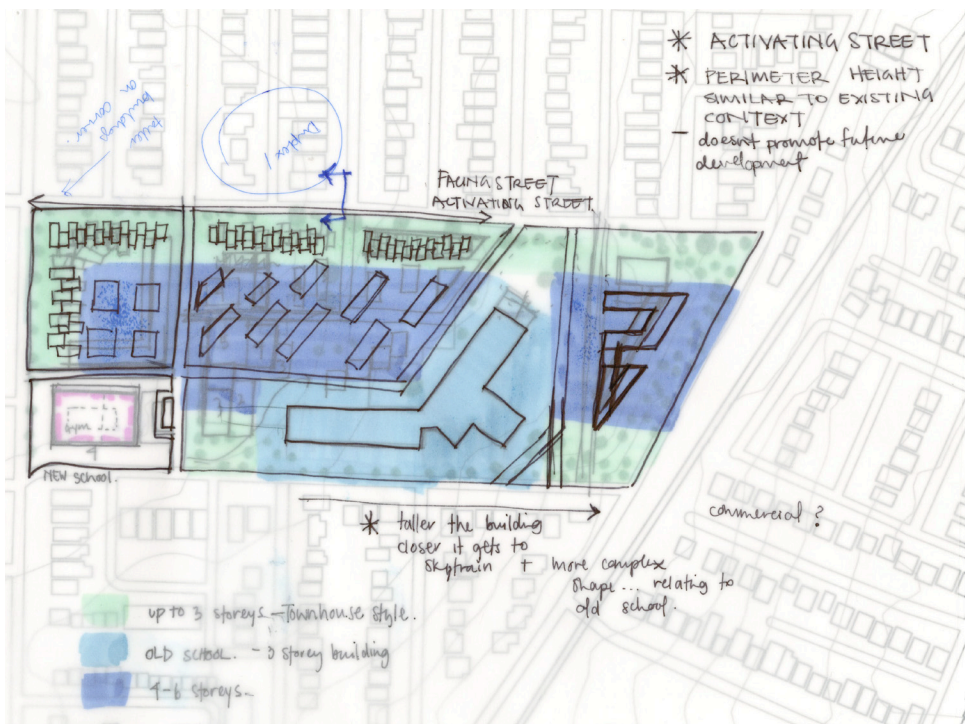 * ACTIVATING STREET
* PERIMETER HEIGHT
SIMILAR TO EXISTING
CONTEXT
- doesn't promote future
development
taller
buildings
on corner.
Duplex
FACING STREET
ACTIVATING STREET.
Gym
4
NEW school.
* taller the building
closer it gets to
skytrain + more complex
shape... relating to
old school.
commercial ?
up to 3 storeys - Townhouse style.
OLD SCHOOL. - 3 storey building
4-6 storeys.